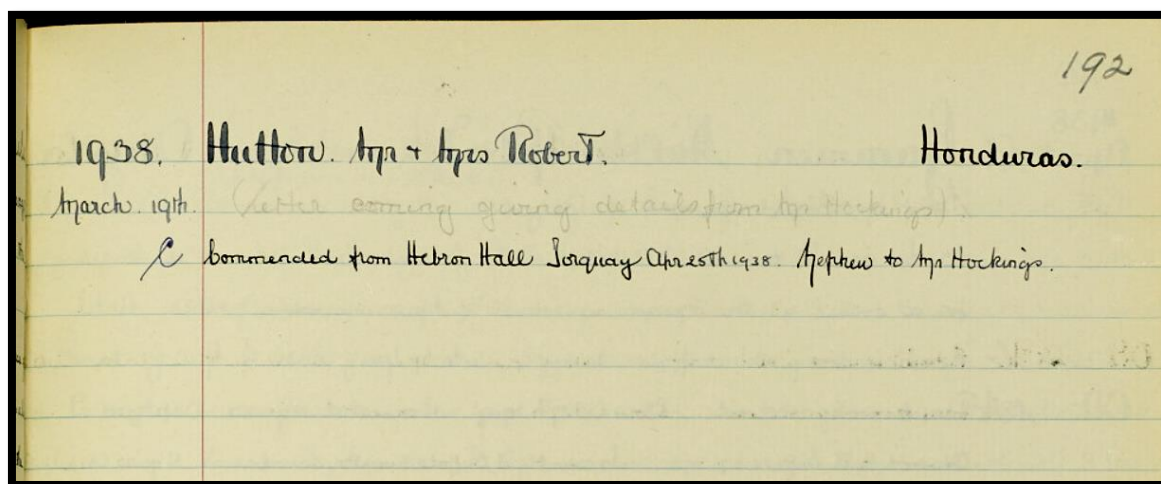 192
1938. Hutton. Mr + Mrs Robert. Honduras.
March. 19th. (Letter coming giving details from Mr Hockings).
C Commended from Hebron Hall Torquay Apr 25th 1938. Nephew to Mr Hockings.